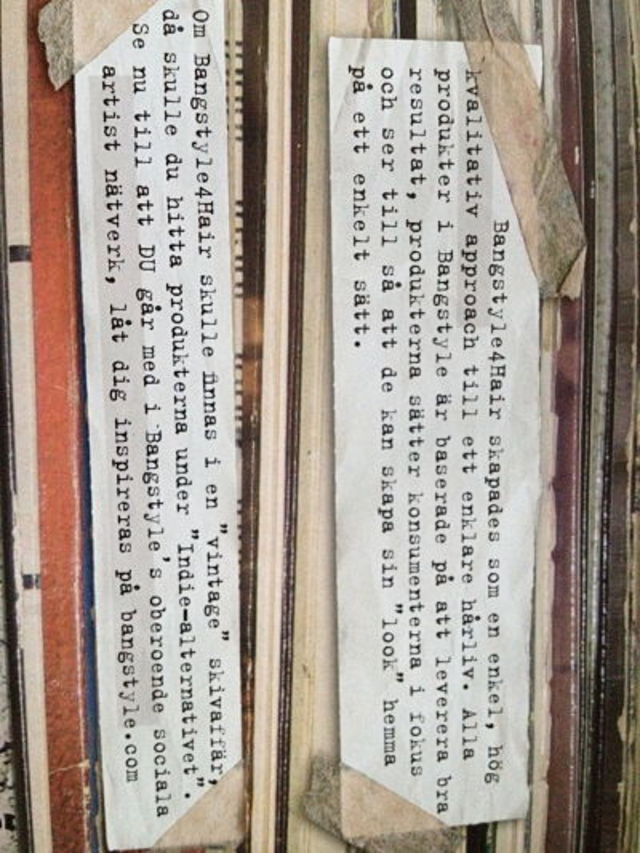 Bangstyle4Hair skapades som en enkel, hög
kvalitativ approach till ett enklare hårliv. Alla
produkter i Bangstyle är baserade på att leverera bra
resultat, produkterna sätter konsumenterna i fokus
och ser till så att de kan skapa sin "look" hemma
på ett enkelt sätt.
Om Bangstyle4Hair skulle finnas i en "vintage" skivaffär,
då skulle du hitta produkterna under "Indie-alternativet".
Se nu till att DU går med i Bangstyle's oberoende sociala
artist nätverk, låt dig inspireras på bangstyle.com